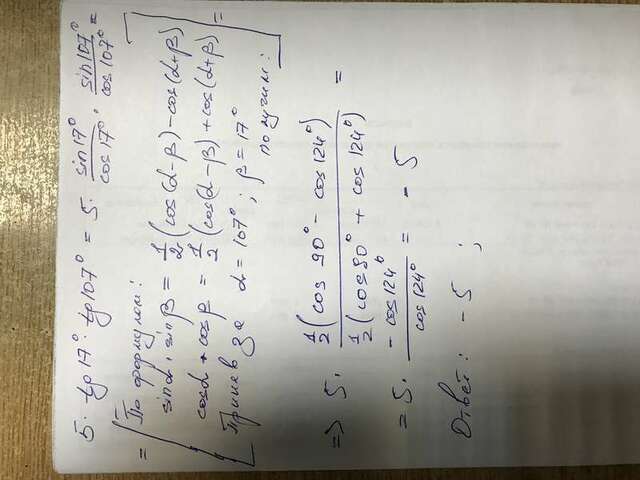 5 · tg 17° · tg 107° = 5 · sin 17° / cos 17° · sin 107° / cos 107° =
= [По формулам:
sin α · sin β = 1/2 (cos(α-β) - cos(α+β)
cos α * cos β = 1/2 (cos(α-β) + cos(α+β) =
Приняв за α = 107° ; β = 17°
получим: ]
=> 5 · 1/2 (cos 90° - cos 124°) / 1/2 (cos 90° + cos 124°) =
= 5 · - cos 124° / cos 124° = - 5
Ответ: - 5 ;